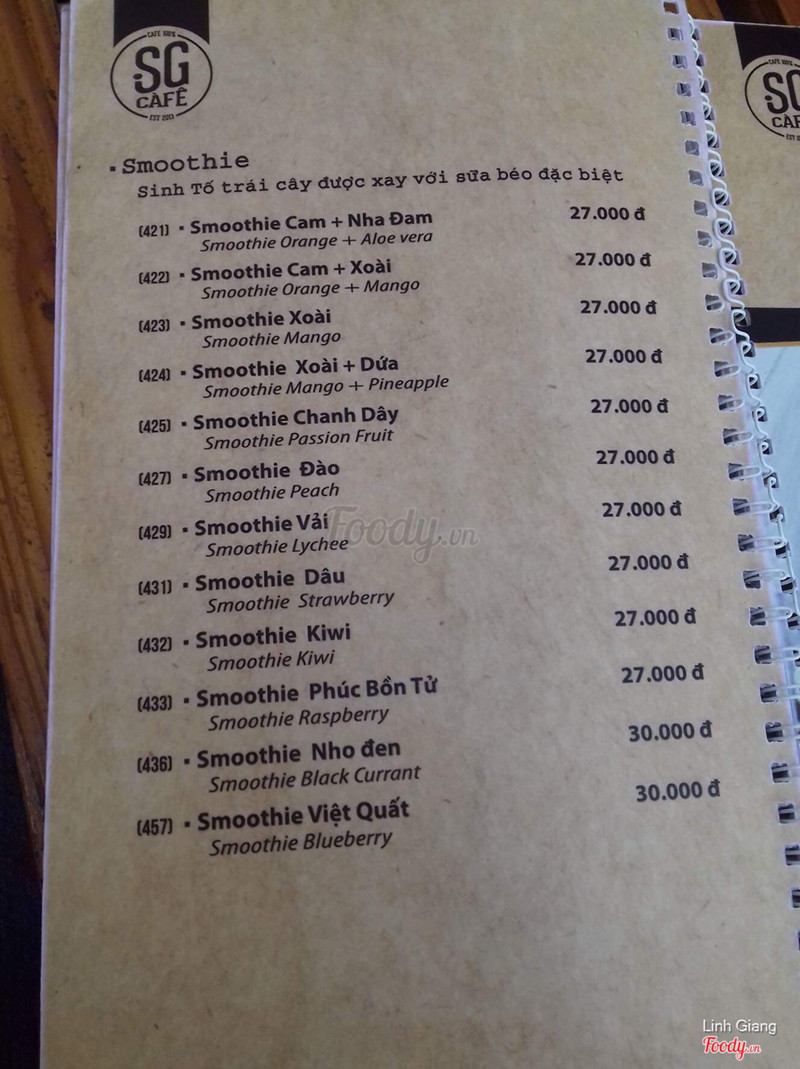 CAFÉ 100%
SG
CÀFÊ
EST 2013
Smoothie
Sinh Tố trái cây được xay với sữa béo đặc biệt
(421) ▪ Smoothie Cam + Nha Đam 27.000 đ
Smoothie Orange + Aloe vera
(422) ▪ Smoothie Cam + Xoài 27.000 đ
Smoothie Orange + Mango
(423) ▪ Smoothie Xoài 27.000 đ
Smoothie Mango
(424) ▪ Smoothie Xoài + Dứa 27.000 đ
Smoothie Mango + Pineapple
(425) ▪ Smoothie Chanh Dây 27.000 đ
Smoothie Passion Fruit
(427) ▪ Smoothie Đào 27.000 đ
Smoothie Peach
(429) ▪ Smoothie Vải 27.000 đ
Smoothie Lychee
(431) ▪ Smoothie Dâu 27.000 đ
Smoothie Strawberry
(432) ▪ Smoothie Kiwi 27.000 đ
Smoothie Kiwi
(433) ▪ Smoothie Phúc Bồn Tử 27.000 đ
Smoothie Raspberry
(436) ▪ Smoothie Nho đen 30.000 đ
Smoothie Black Currant
(457) ▪ Smoothie Việt Quất 30.000 đ
Smoothie Blueberry
Foody.vn
Linh Giang
Foody.vn